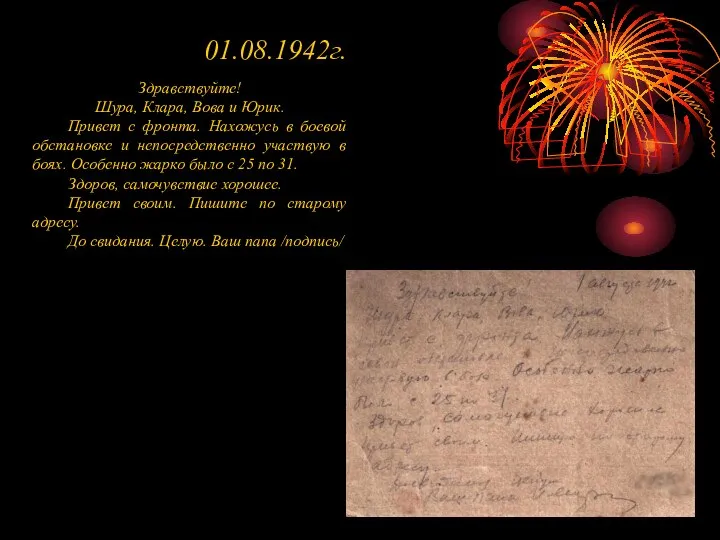 01.08.1942г.
Здравствуйте!
Шура, Клара, Вова и Юрик.
Привет с фронта. Нахожусь в боевой
обстановке и непосредственно участвую в
боях. Особенно жарко было с 25 по 31.
Здоров, самочувствие хорошее.
Привет своим. Пишите по старому
адресу.
До свидания. Целую. Ваш папа /подпись/
Здравствуйте! 1 августа 1942
Шура Клара Вова, Юрик
Привет с фронта. Нахожусь в
боевой обстановке и непосредственно
участвую в боях Особенно жарко
было с 25 по 31.
Здоров, самочувствие хорошее
Привет своим. Пишите по старому
адресу.
До свидания Целую
Ваш папа